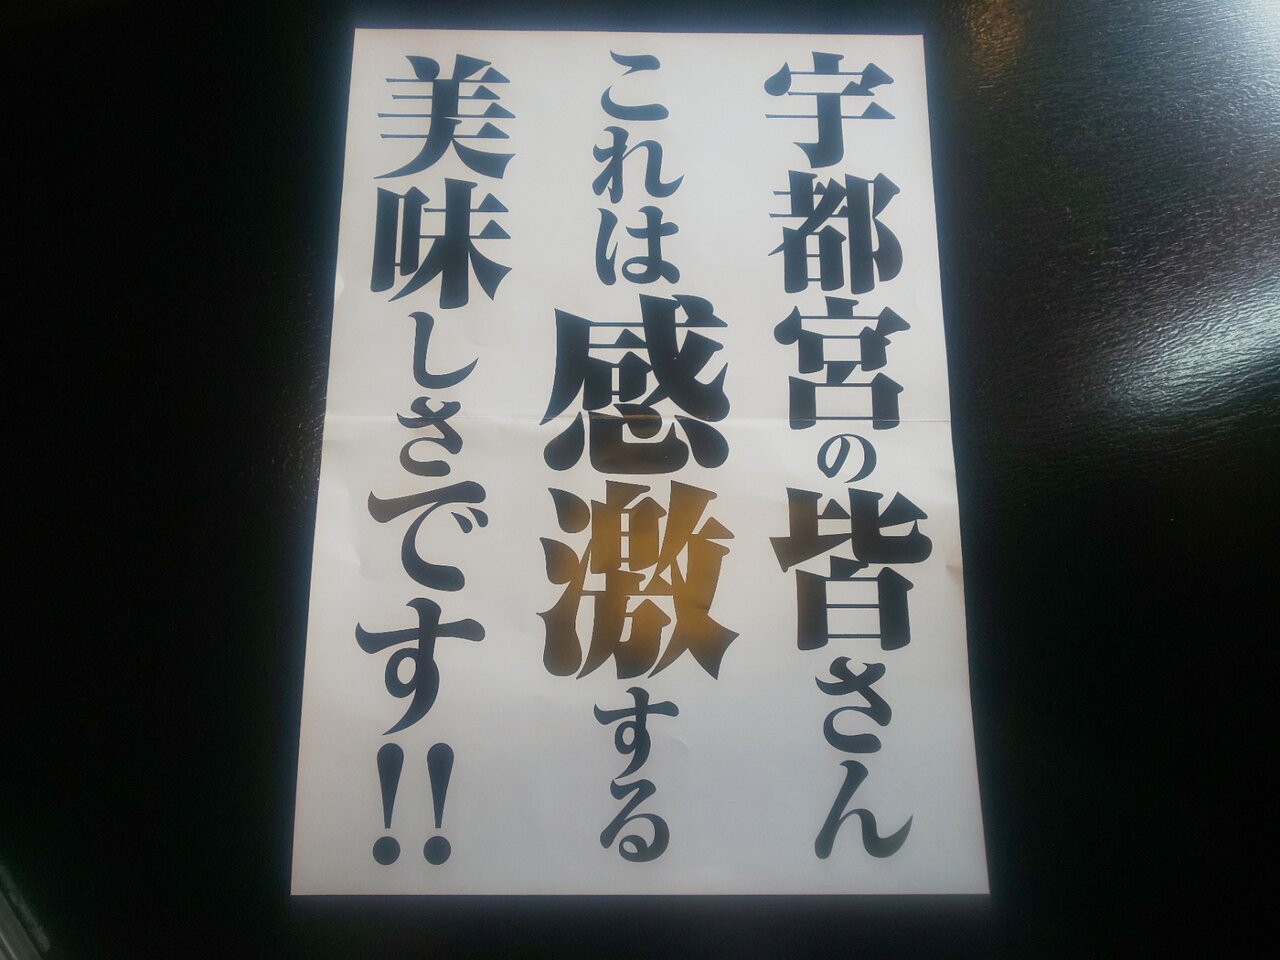 宇都宮の皆さん
これは感激する
美味しさです!!